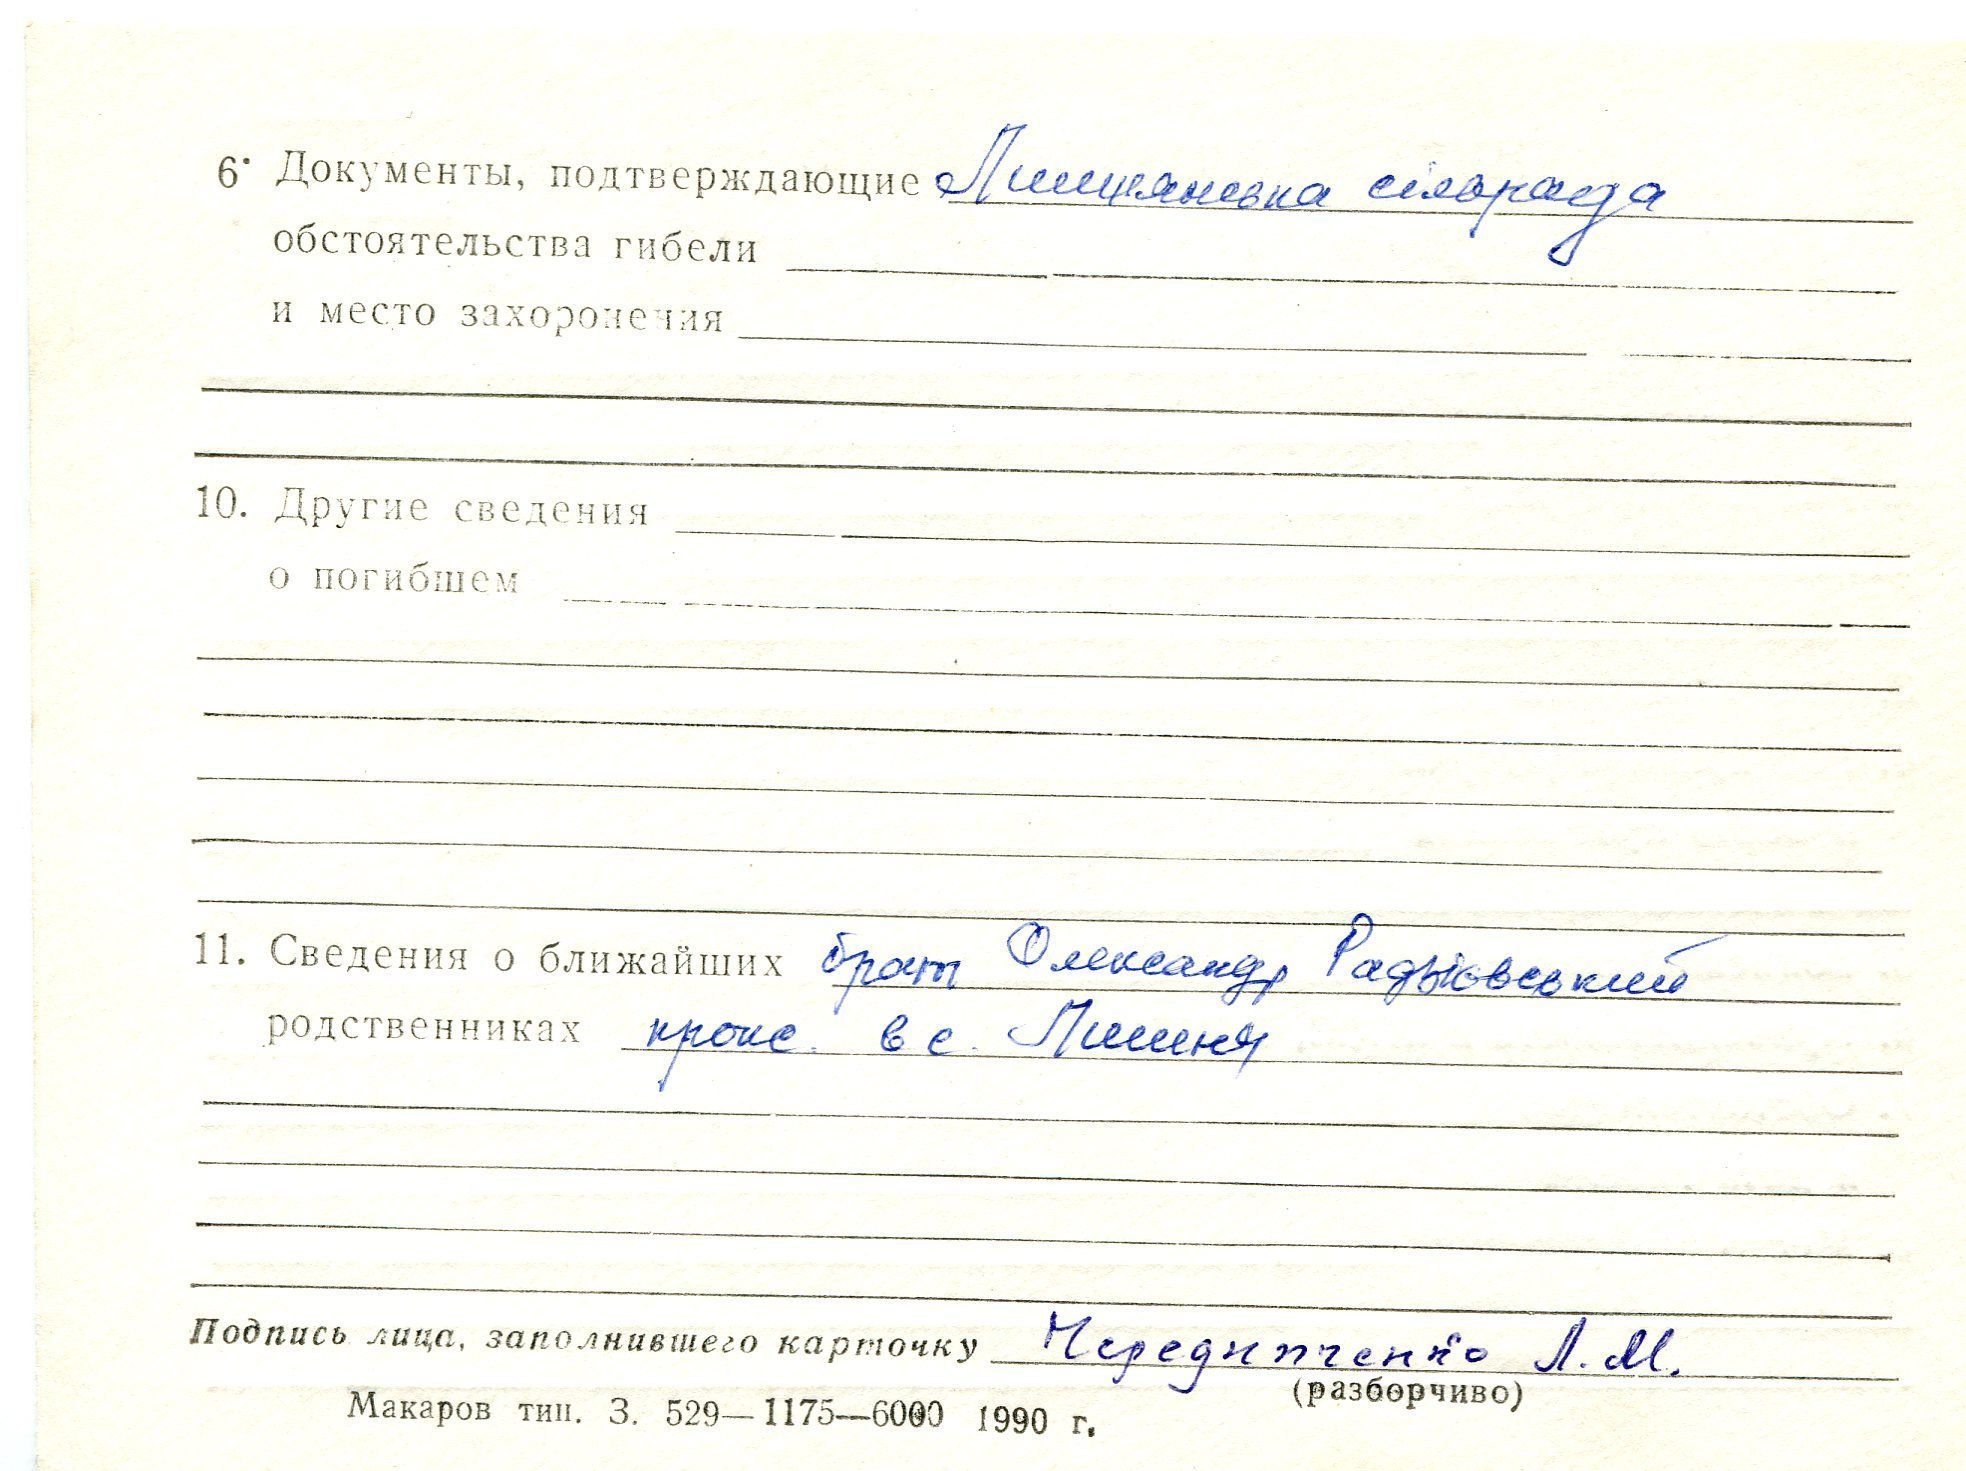 6. Документы, подтверждающие Лишнянська сільрада
обстоятельства гибели
и место захоронения
10. Другие сведения
о погибшем
11. Сведения о ближайших брат Олександр Радзієвський
родственниках прож. в с. Лишня
Подпись лица, заполнившего карточку Чередниченко Л. М.
(разборчиво)
Макаров тип. З. 529—1175—6000 1990 г.